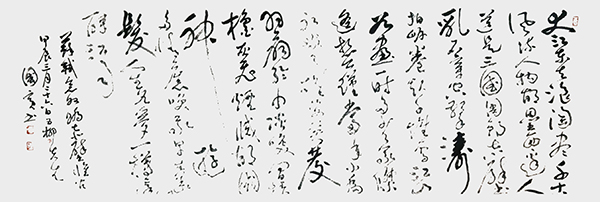 大江东去浪淘尽千古
风流人物故垒西边人
道是三國周郎赤壁
乱石穿空惊涛
拍岸卷起千堆雪江山
如画一时多少豪傑
遥想公瑾当年小乔
初嫁了雄姿英發
羽扇纶巾谈笑间樯
橹灰飞煙灭故國
神遊
多情应笑我早生华
髮人生如梦一樽还
酹江月
苏轼念奴娇赤壁怀古
甲辰三月二十六日
國